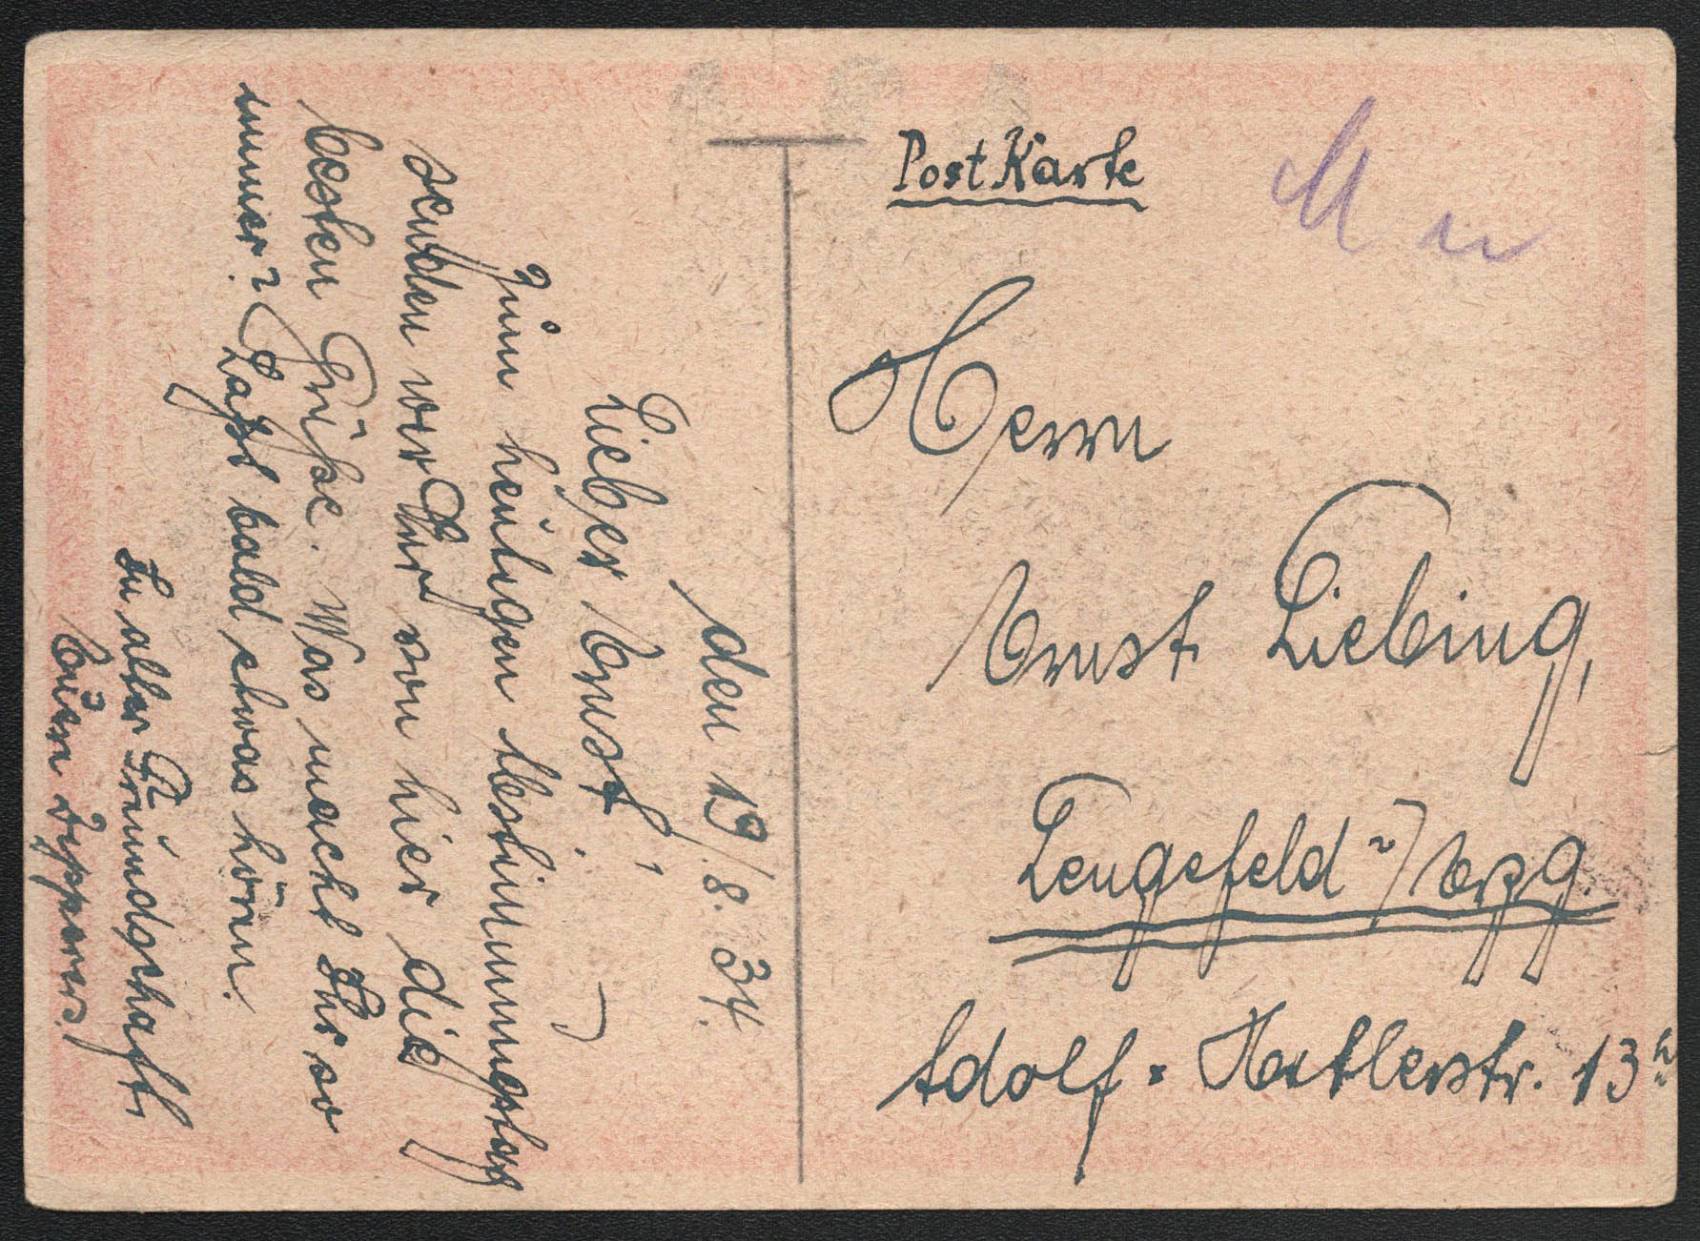 den 19./8. 34.
Lieber Ernst!
Zum heutigen Abstimmungstag
senden wir Dir von hier die
besten Grüße. Was macht Ihr so
immer? Laßt bald etwas hören.
In alter Freundschaft
Post Karte
Herrn
Ernst Liebing,
Lengefeld i/Erzg.
Adolf-Hitlerstr. 13